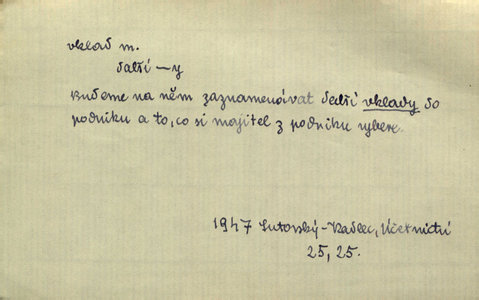 vklad m.
další —y
Budeme na něm zaznamenávat další vklady do
podniku a to, co si majitel z podniku vybere.
1947 Lutovský-Kadlec, Účetnictví
25, 25.